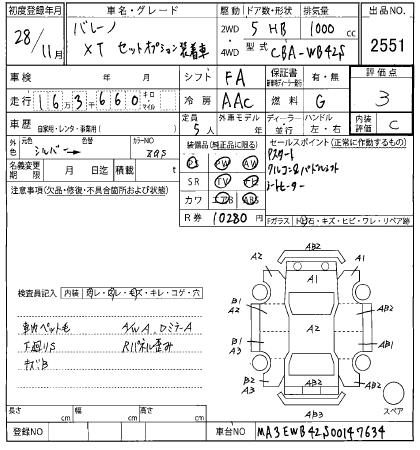 初度登録年月 車名・グレード 駆動 ドア数・形状 排気量 出品NO.
28/11月 バレーノ 2WD 4WD 5 HB 1000 cc 2551
XT セットオプション装着車 型式 CBA-WB42S
車検 年 月 シフト FA 保証書 有・無 評価点
走行 16万3千660 キロ マイル 冷房 AAC 燃料 G 3
車歴 自家用・レンタ・事業用( ) 定員 5人 外車モデル 年 ディーラー・並行 ハンドル 左・右 内装評価 C
外色 元色 シルバー→ 色替 カラーNO. ZQS 装備品(純正品に限る) セールスポイント(正常に作動するもの)
名義変更期限 月 日迄 積載 t PS PW AW
SR TV ナビ
カワ エアB ABS
Pスタート
クルコン&パドルシフト
シートヒーター
注意事項(欠品・修復・不具合箇所および状態) R券 10280円 Fガラス トビ石・キズ・ヒビ・ワレ・リペア跡
検査員記入 内装 ヨゴレ・スレ・キズ・キレ・コゲ・穴
車内ペット毛 A/W A、ロミラーA
下廻りS Rパネル歪み
キズB
AB2
A2 A1 A1
B1 A2 A2 AB1
B1 A3 AB1
A2 AB2 AB2
AB3
スペア
長さ cm 幅 cm 高さ cm
登録NO 車台NO MA3EWB42S00147634